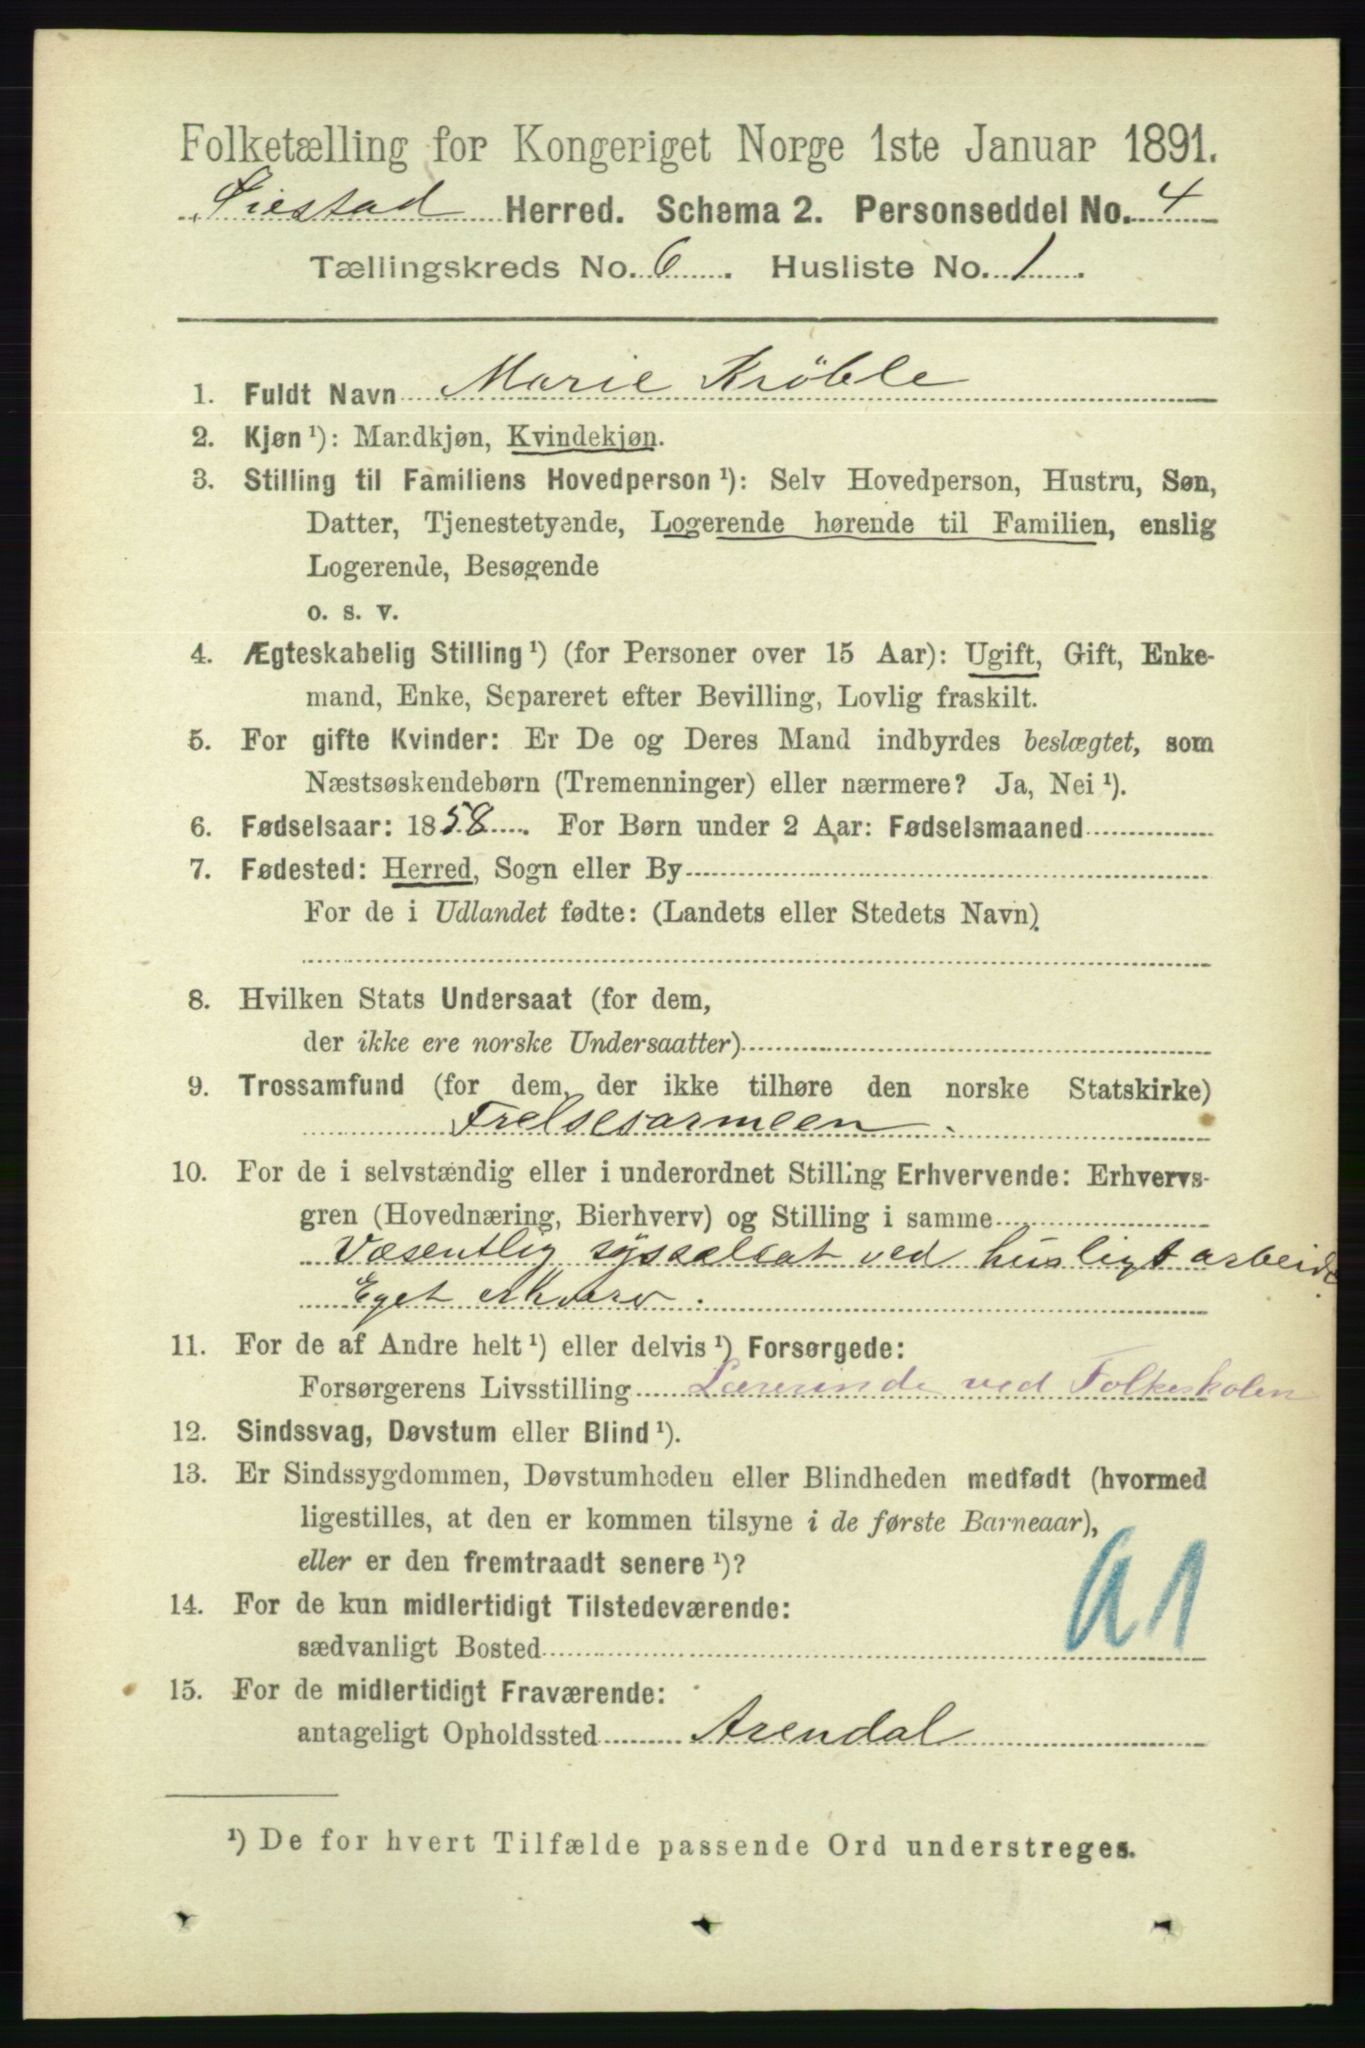 Folketælling for Kongeriget Norge 1ste Januar 1891.
Øiestad Herred. Schema 2. Personseddel No. 4
Tællingskreds No. 6. Husliste No. 1.
1. Fuldt Navn Marie Kröble
2. Kjøn ¹): Mandkjøn, Kvindekjøn.
3. Stilling til Familiens Hovedperson ¹): Selv Hovedperson, Hustru, Søn,
Datter, Tjenestetyende, Logerende hørende til Familien, enslig
Logerende, Besøgende
o. s. v.
4. Ægteskabelig Stilling ¹) (for Personer over 15 Aar): Ugift, Gift, Enke-
mand, Enke, Separeret efter Bevilling, Lovlig fraskilt.
5. For gifte Kvinder: Er De og Deres Mand indbyrdes beslægtet, som
Næstsøskendebørn (Tremenninger) eller nærmere? Ja, Nei ¹).
6. Fødselsaar: 1858. For Børn under 2 Aar: Fødselsmaaned
7. Fødested: Herred, Sogn eller By
For de i Udlandet fødte: (Landets eller Stedets Navn)
8. Hvilken Stats Undersaat (for dem,
der ikke ere norske Undersaatter)
9. Trossamfund (for dem, der ikke tilhøre den norske Statskirke)
Frelsesarmeen.
10. For de i selvstændig eller i underordnet Stilling Erhvervende: Erhvervs-
gren (Hovednæring, Bierhverv) og Stilling i samme
Væsentlig sysselsat ved husligt arbeide.
Eget erhverv.
11. For de af Andre helt ¹) eller delvis ¹) Forsørgede:
Forsørgerens Livsstilling Lærerinde ved Folkeskolen
12. Sindssvag, Døvstum eller Blind ¹).
13. Er Sindssygdommen, Døvstumheden eller Blindheden medfødt (hvormed
ligestilles, at den er kommen tilsyne i de første Barneaar),
eller er den fremtraadt senere ¹)?
a1
14. For de kun midlertidigt Tilstedeværende:
sædvanligt Bosted
15. For de midlertidigt Fraværende:
antageligt Opholdssted Arendal
¹) De for hvert Tilfælde passende Ord understreges.